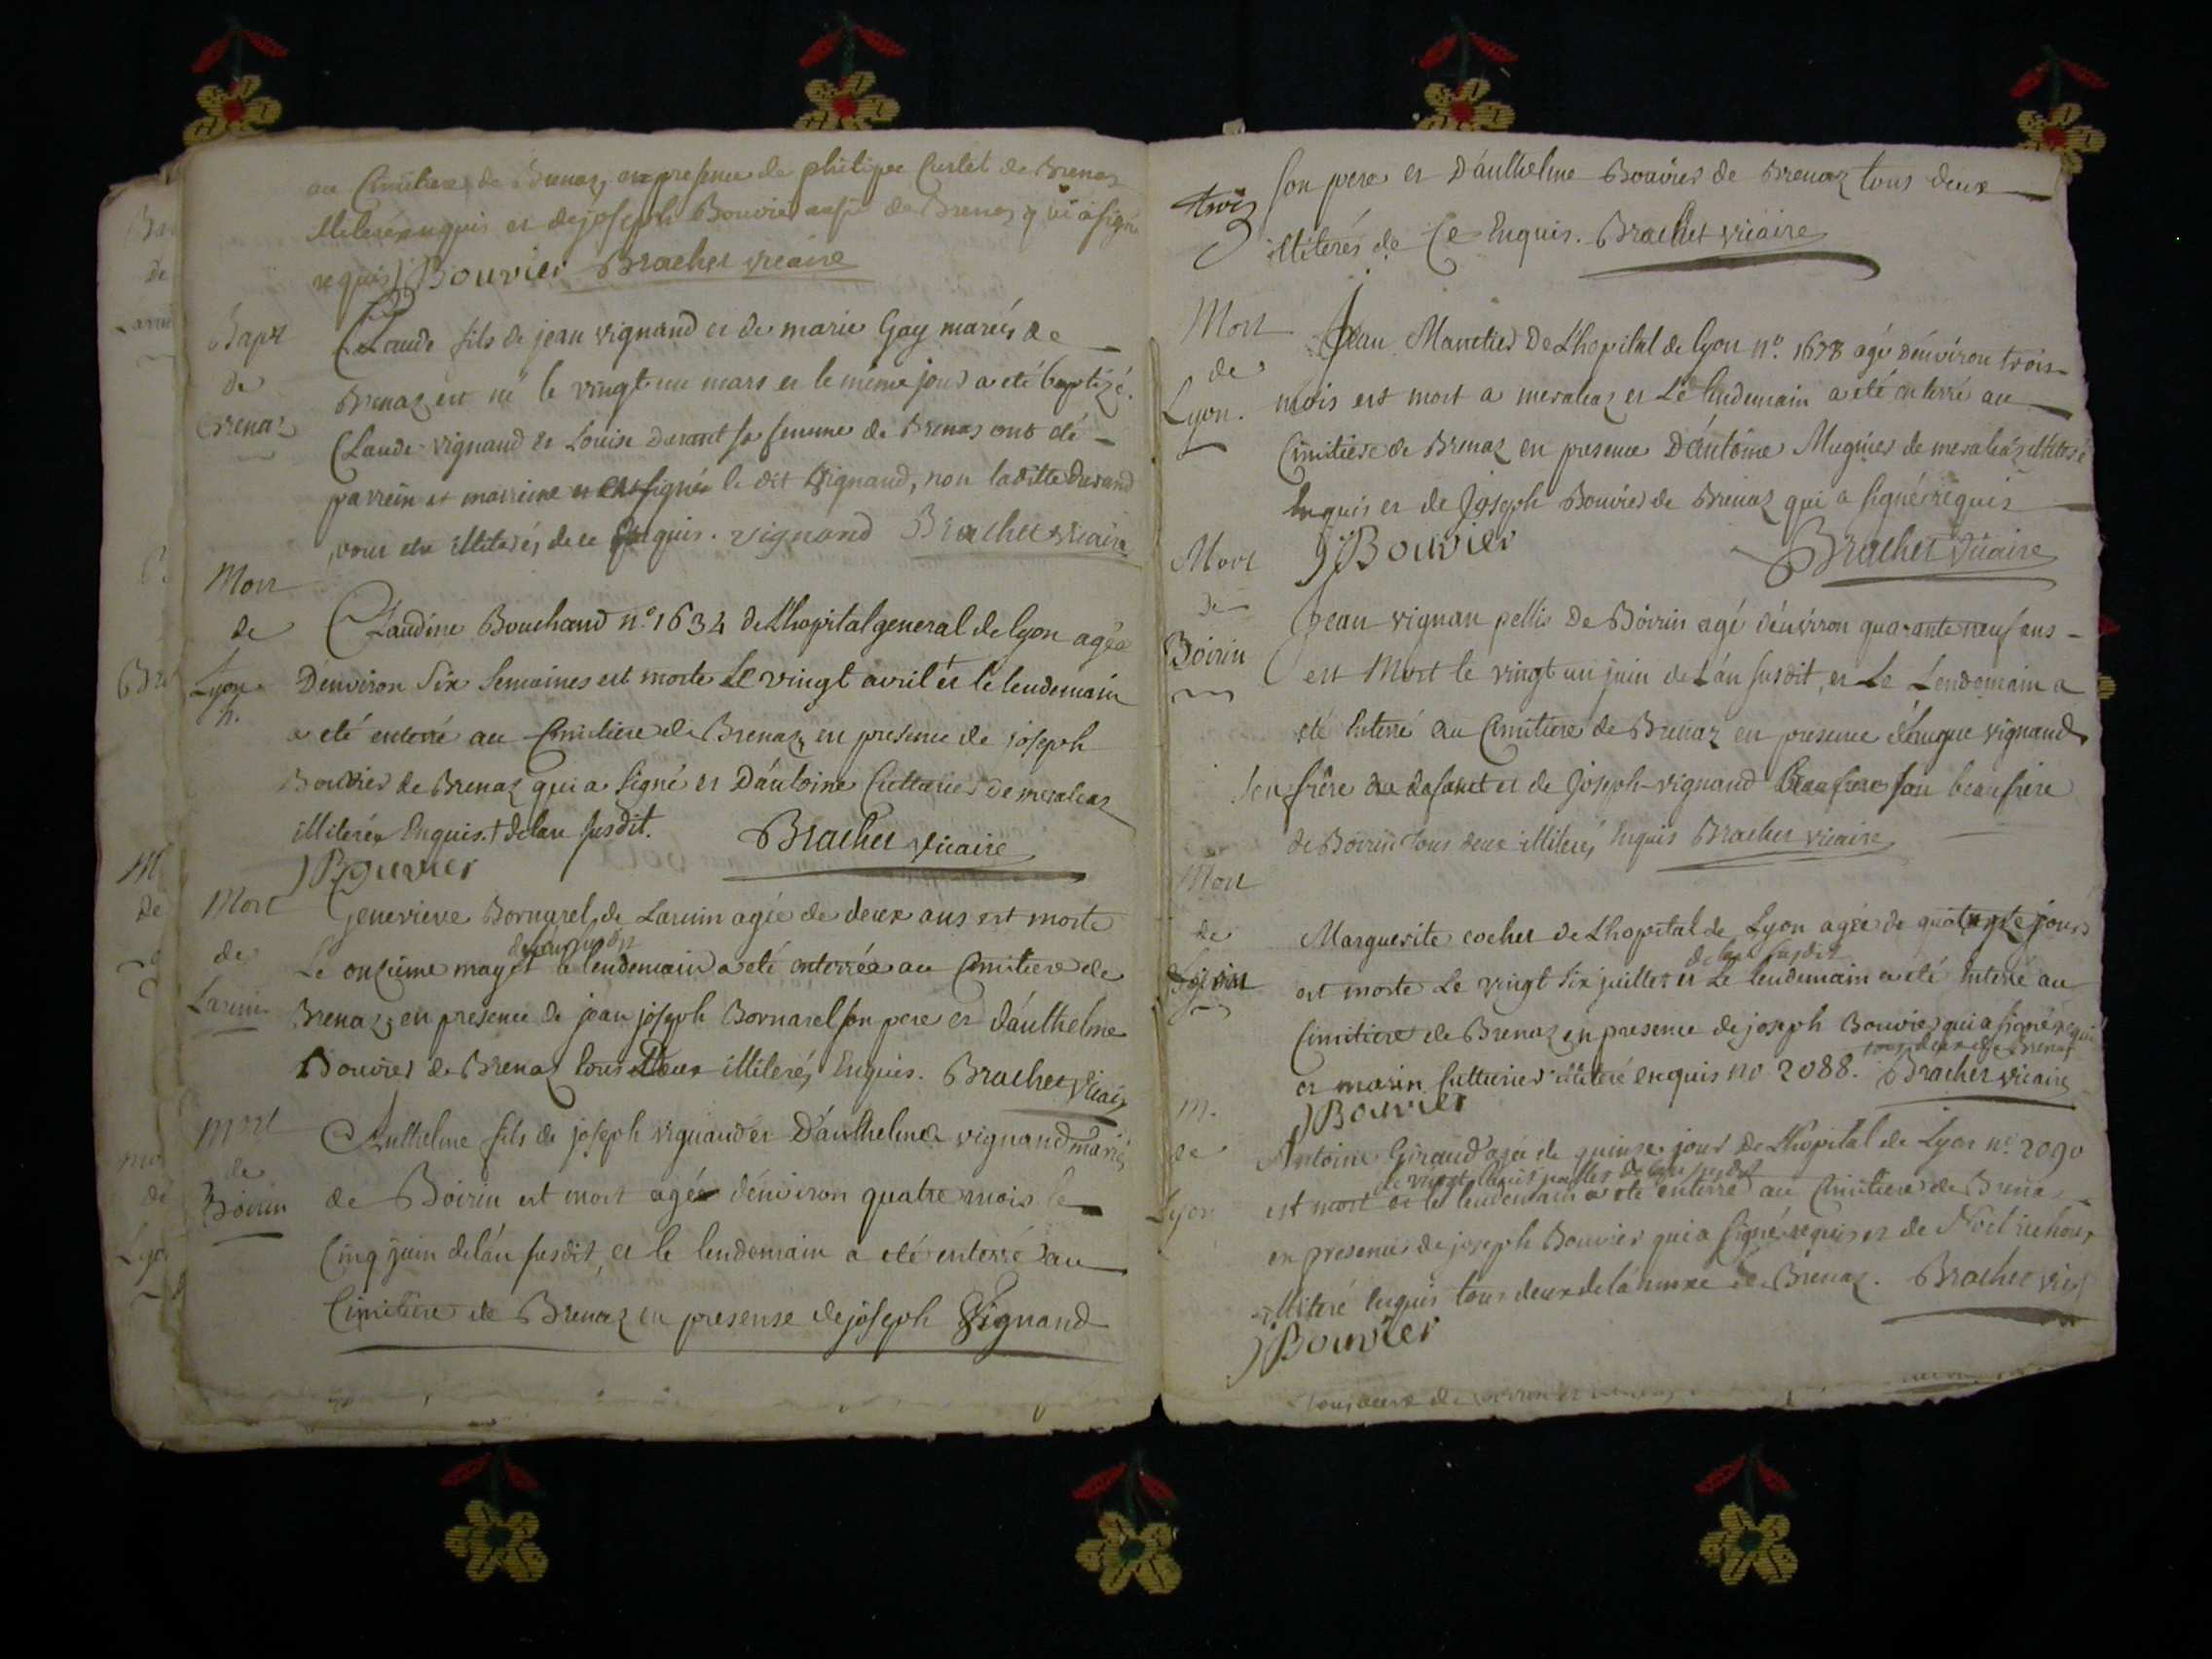 au Cimitiere de Brenaz, en presence de philipe Curtet de Brenaz
illiteré enquis et de joseph Bouvier aussi de Brenaz qui a signé
requis J Bouvier Brachet vicaire
Bapt
de
Brenaz
Claude fils de jean vignand et de marie Gay mariés de
Brenaz est né le vingt un mars et le même jour a eté baptizé.
Claude vignand et Louise Durand sa femme de Brenaz ont eté
parrein et marreine et ont signé le dit vignand, non laditte durand
pour etre illiterés de ce enquis. vignand Brachet vicaire
Mort
de
Lyon
Claudine Bouchand n.o 1634 de L'hopital general de lyon agée
D'environ six semaines est morte Le vingt avril † et le lendemain
a eté enterré au Cimitiere de Brenaz, en presence de joseph
Bouvier de Brenaz qui a signé et D'antoine Cuttarier de meraleaz
illiteré Enquis. † de lan susdit. Brachet vicaire
J Bouvier
Mort
de
Laruin
Genevieve Bornarel de Laruin agée de deux ans est morte
de lan susdit
Le onzieme may et le lendemain a eté enterrée au Cimitiere de
Brenaz, en presence de jean joseph Bornarel son pere et d'anthelme
Bouvier de Brenaz tous Deux illiterés Enquis. Brachet vicaire
Mort
de
Boirin
Anthelme fils de joseph vignand et D'anthelme vignand mariés
de Boirin est mort agée d'environ quatre mois le
Cinq juin de lán susdit, et le lendemain a eté enterré au
Cimitiere de Brenaz en presense de joseph Vignand
trois
son pere et D'anthelme Bouvier de Brenaz tous deux
illiterés de Ce Enquis. Brachet vicaire
Mort
de
Lyon.
Jean Manetier De L'hopital de lyon n.o 1678 agé d'environ trois
mois est mort a meraleaz et Le lendemain a eté enterré au
Cimitiere de Brenaz en presence D'antoine Mugnier de meraleaz illiteré
Enquis et de Joseph Bouvier de Brenaz qui a signé requis
J Bouvier Brachet vicaire
Mort
de
Boirin
Jean vignan pellis de Boirin agé d'environ quarante neuf ans
est Mort le vingt un juin de L'án susdit, et Le Lendemain a
eté Enterré au Cimitiere de Brenaz en presence d'hugue vignand
son frère du defunt et de Joseph vignand Beaufrere son beaufrère
de Boirin tous deux illiterés Enquis Brachet vicaire
Mort
de
Marguerite cochet de L'hopital de Lyon agée de quatorze jours
de lan susdit
est morte Le vingt six juillet et Le lendemain a eté Enterré au
Cimitiere de Brenaz en presence de joseph Bouvier qui a signé requis
tous deux de Brenaz
et marin Cuttarier illiteré enquis no 2088. Brachet vicaire
J Bouvier
M.
de
Lyon
Antoine Giraud agé de quinse jour de L'hopital de Lyon n.o 2090
le vingt huit juillet de lan susdit
est mort et le lendemain a eté enterré au Cimitiere de Brenaz
en presence de joseph Bouvier qui a signé requis et de Noel
illiteré Enquis tous deux de la de Brenaz. Brachet vic
J Bouvier
tous deux de